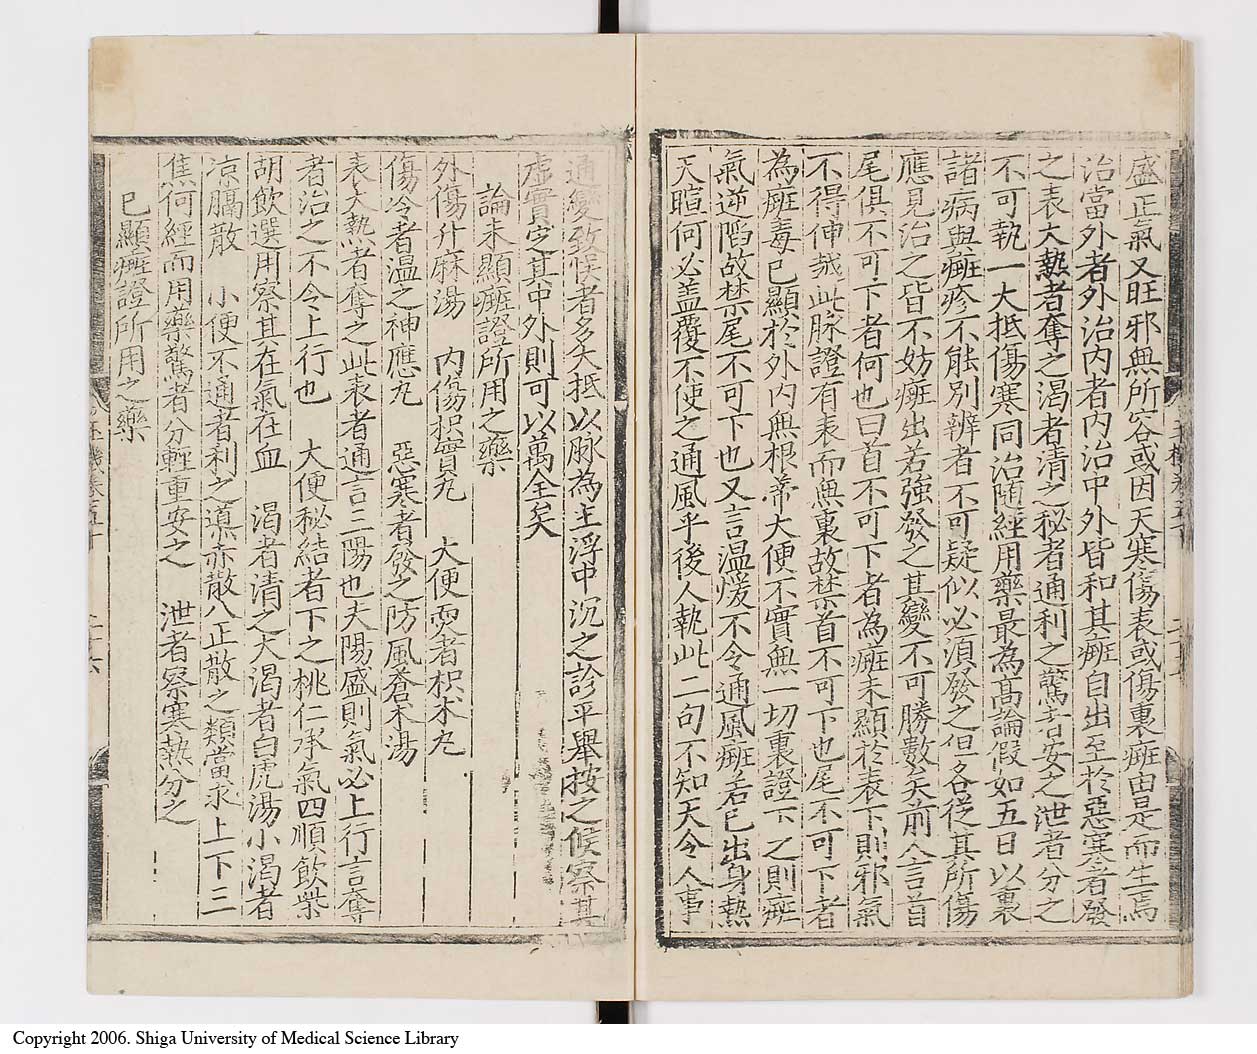 盛正氣又旺邪無所容或因天寒傷表或傷裏癍由是而生焉
治當外者外治內者內治中外皆和其癍自出至於惡寒者發
之表大熱者奪之渴者清之秘者通利之驚者安之泄者分之
不可執一大抵傷寒同治隨經用藥最為高論假如五日以裏
諸病與癍疹不能別辨者不可疑似必須發之但各從其所傷
應見治之皆不妨癍出若強發之其變不可勝數矣前人言首
尾俱不可下者何也曰首不可下者為癍未顯於表下則邪氣
不得伸越此脉證有表而無裏故禁首不可下也尾不可下者
為癍毒已顯於外內無根蒂大便不實無一切裏證下之則癍
氣逆陷故禁尾不可下也又言温煖不令通風癍若已出身熱
天暄何必蓋覆不使之通風乎後人執此二句不知天令人事
通變致悞者多大抵以脉為主浮中沉之診平舉按之候察其
虛實定其中外則可以萬全矣
論未顯癍證所用之藥
外傷升麻湯 內傷枳實丸 大便耎者枳朮丸
傷冷者温之神應丸 惡寒者發之防風蒼朮湯
表大熱者奪之此表者通言三陽也夫陽盛則氣必上行言奪
者治之不令上行也 大便秘結者下之桃仁承氣四順飲柴
胡飲選用察其在氣在血 渴者清之大渴者白虎湯小渴者
凉膈散 小便不通者利之導赤散八正散之類當求上下三
焦何經而用藥驚者分輕重安之 泄者察寒熱分之
已顯癍證所用之藥
Copyright 2006. Shiga University of Medical Science Library